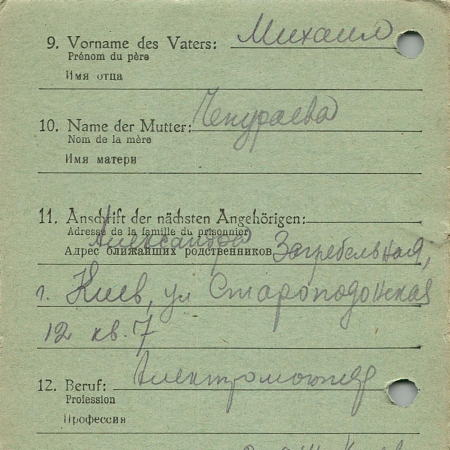 9. Vorname des Vaters: Михаил
Prénom du père
Имя отца
10. Name der Mutter: Чекураева
Nom de la mère
Имя матери
11. Anschrift der nächsten Angehörigen:
Adresse de la famille du prisonnier
Александра
Адрес ближайших родственников Загребельная,
г. Киев, ул Староподонская
12 кв. 7
12. Beruf: Электромонтер
Profession
Профессия